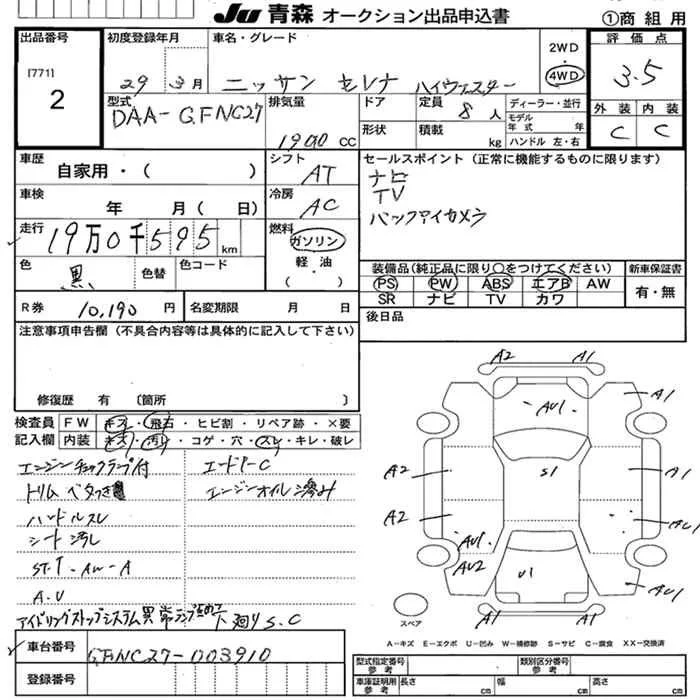 JU 青森 オークション出品申込書
①商組用
出品番号
[771]
2
初度登録年月
29 3月
車名・グレード
ニッサン セレナ ハイウェイスター
2WD
・
4WD
評価点
3.5
外装 内装
C C
型式
DAA-GFNC27
排気量
1900 CC
ドア
形状
定員 8 人
積載 kg
ディーラー・並行
モデル
年式 年
ハンドル 左・右
車歴
自家用・( )
車検
年 月( 日)
走行
19万0千595km
色
黒
色替
色コード
シフト
AT
冷房
AC
燃料
ガソリン
・
軽油
・
( )
セールスポイント(正常に機能するものに限ります)
ナビ
TV
バックアイカメラ
装備品(純正品に限り○をつけてください)
PS PW ABS エアB AW
SR ナビ TV カワ
新車保証書
有・無
後日品
R券 10,190 円
名変期限 月 日
注意事項申告欄(不具合内容等は具体的に記入して下さい)
修復歴 有 〔箇所 〕
検査員
記入欄
FW キズ・飛石・ヒビ割・リペア跡・×要
内装 キズ・汚れ・コゲ・穴・スレ・キレ・破レ
エンジンチェックランプ付
エードアーC
トリム ベタつき
エンジンオイル滲み
ハンドルスレ
シート汚し
ST.T-AW-A
A.U
アイドリングストップシステム異常ランプ
下廻りS.C
車台番号
GFNC27-003910
登録番号
A2 A1
AU1 A1
A2 S1 A1
A2 AU1
AU1
AU2 U1 AU1
A1 A1
スペア
A-キズ E-エクボ U-凹み W-補修跡 S-サビ C-腐食 XX-交換済
型式指定番号
参考
類別区分番号
参考
車庫証明用
参考
長さ cm
幅 cm
高さ cm